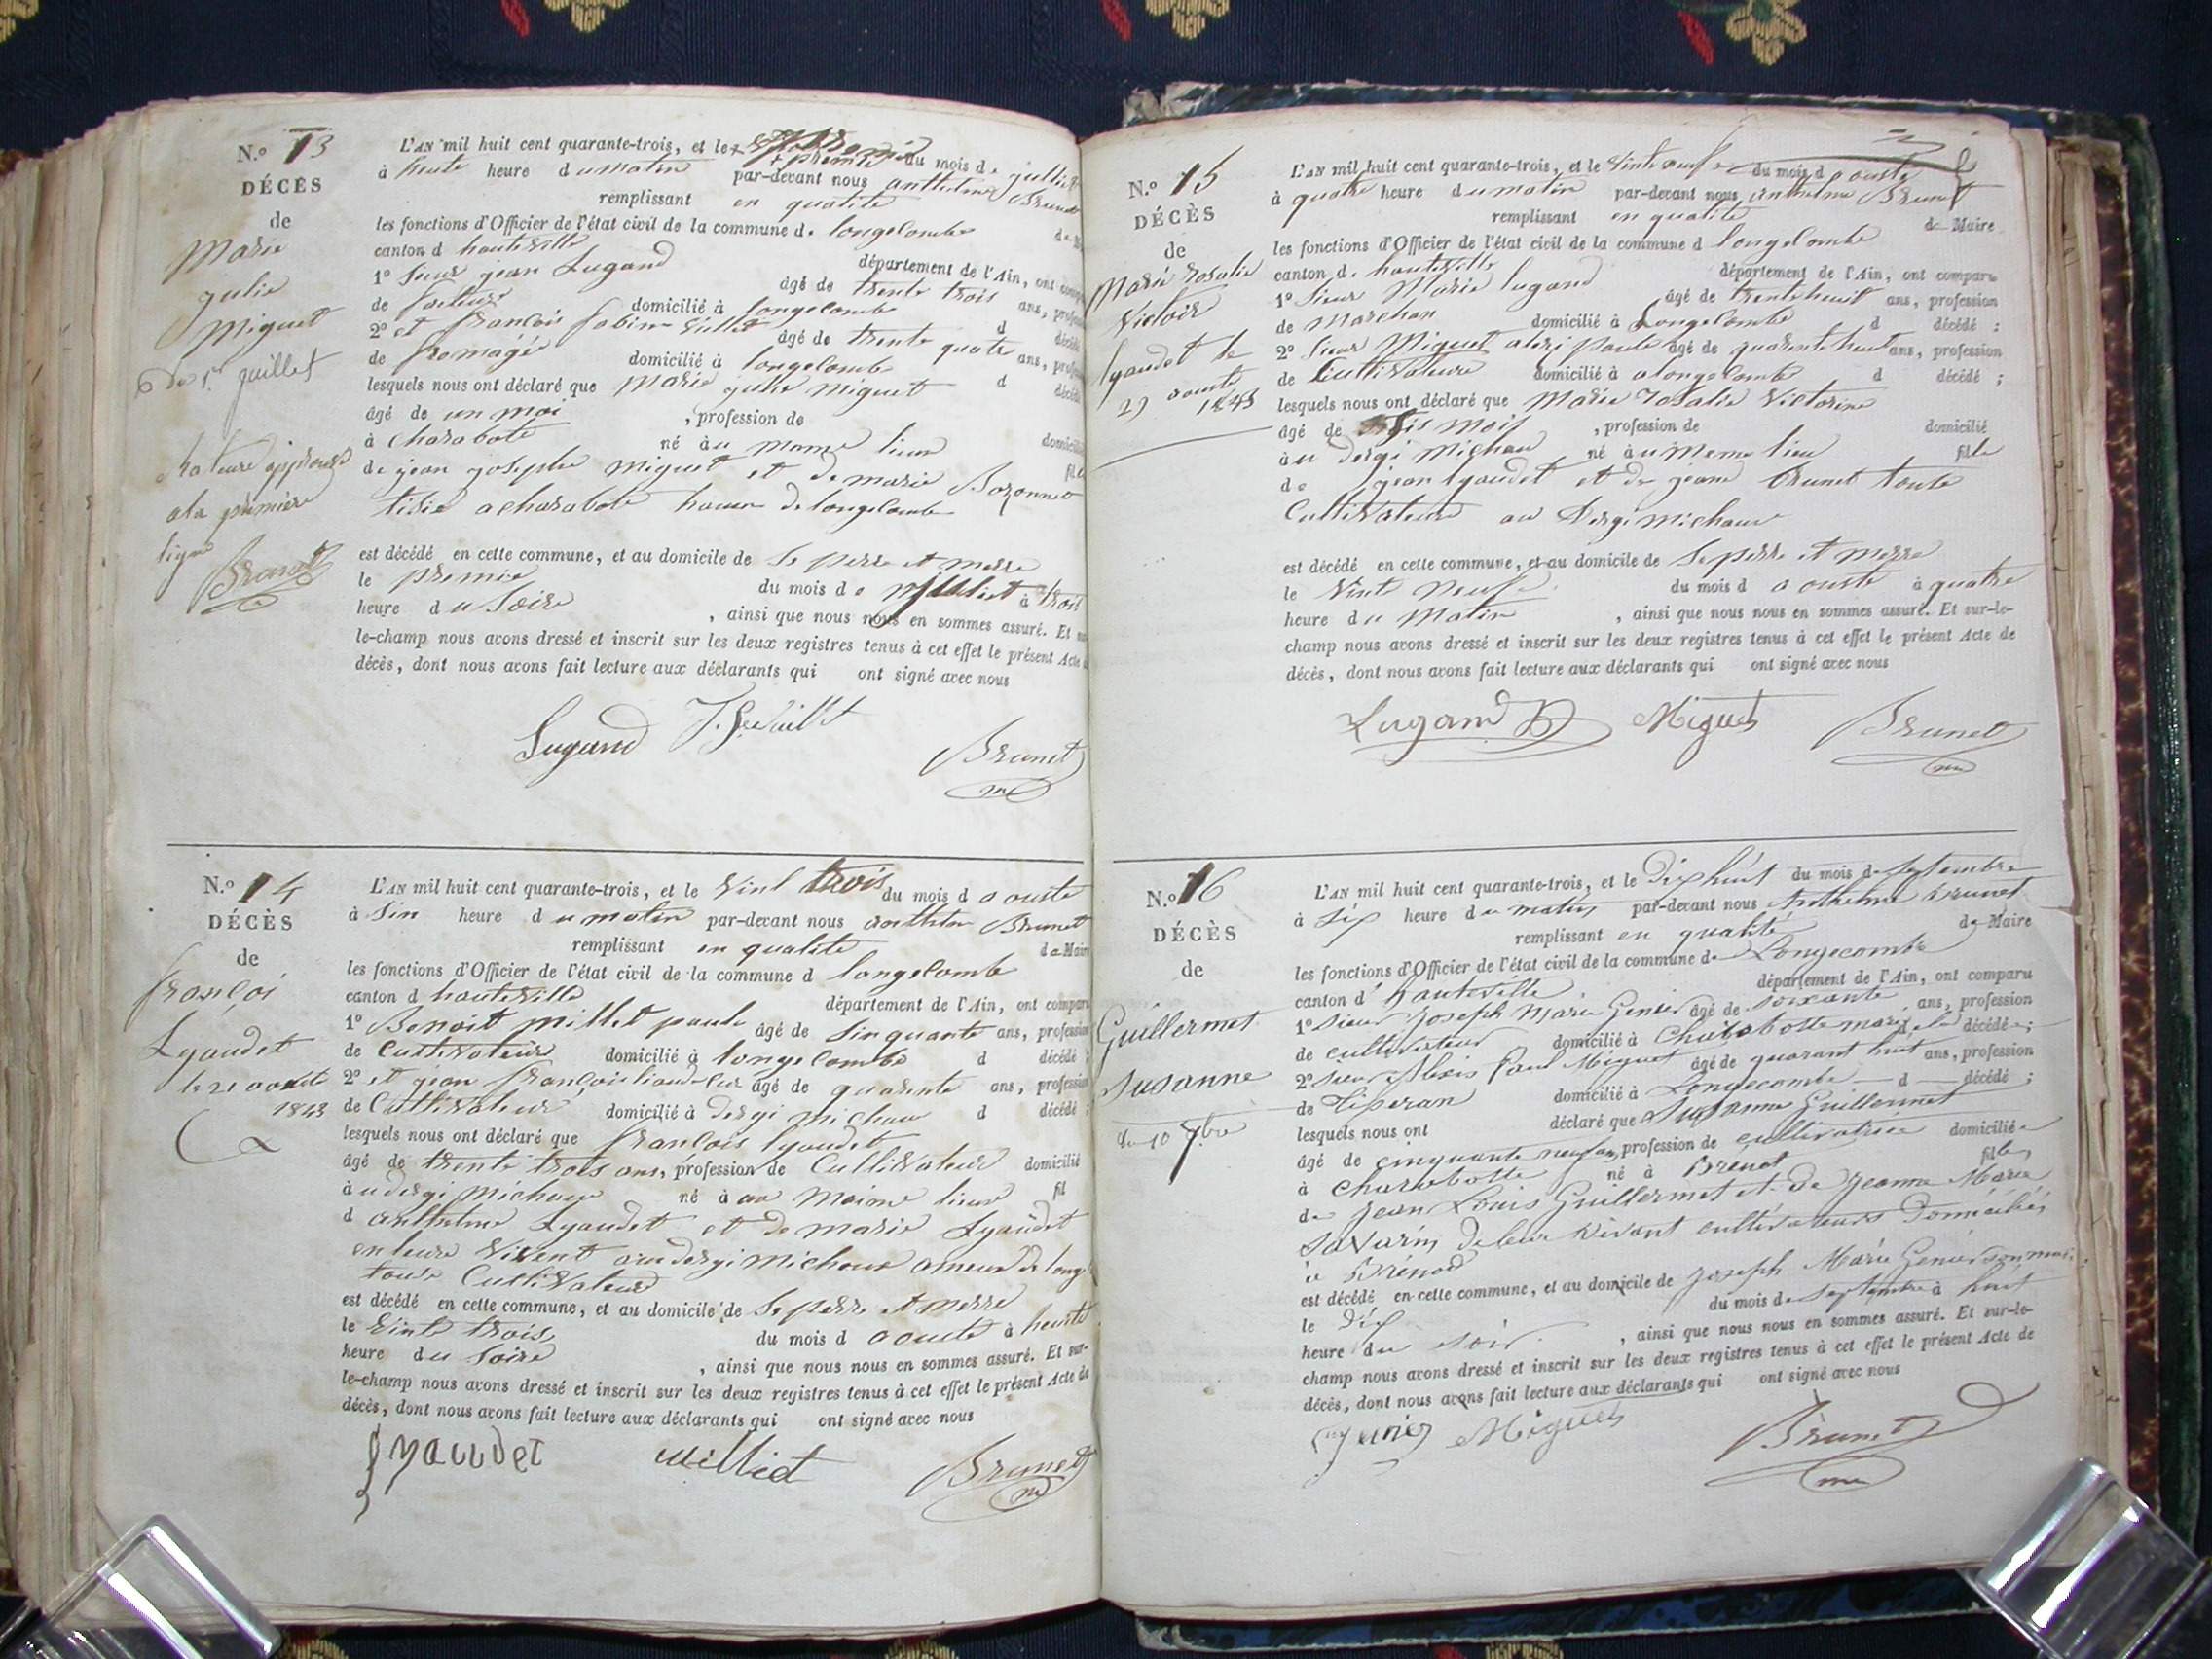 N.o 13
DÉCÈS
de
Marie
julie
Miguet
du 1er juillet
approuvé
a la première
ligne
Brunet
L'AN mil huit cent quarante-trois, et le premié du mois de juillet
à heure du matin par-devant nous anthelme Brunet
remplissant en qualité de M
les fonctions d'Officier de l'état civil de la commune de longecombe
canton d hauteville département de l'Ain, ont comp
1o Sieur jean Lugand âgé de trente trois ans, profes
de domicilié à longecombe d décédé
2o et françois âgé de trente quatre ans, profes
de fromagé domicilié à longecombe d décédé
lesquels nous ont déclaré que Marie julie Miguet
âgé de un moi , profession de domicilié
à Charabote né àu mame lieu fille
de jean josephe Miguet et de marie Bozonnet
a charabote de longecombe
est décédé en cette commune, et au domicile de Se perre et merre
le premie du mois de juiliet à trois
heure du Soire , ainsi que nous nous en sommes assuré. Et
le-champ nous avons dressé et inscrit sur les deux registres tenus à cet effet le présent Acte d
décès, dont nous avons fait lecture aux déclarants qui ont signé avec nous
Lugand
Brunet
N.o 14
DÉCÈS
de
françoi
Lyaudet
1843
L'AN mil huit cent quarante-trois, et le Vint trois du mois d aouste
à Sin heure du matin par-devant nous Brunet
remplissant en qualité de Maire
les fonctions d'Officier de l'état civil de la commune d longecombe
canton d hauteville département de l'Ain, ont comparu
1o Benoit millet paule âgé de Sinquante ans, profession
de Cultivateur domicilié à longecombe d décédé ;
2o et jean françois âgé de quarente ans, profession
de Cultivateur domicilié à dergi michau d décédé ;
lesquels nous ont déclaré que françois lyaudet
âgé de trente trois ans, profession de Cultivateur domicilié
àu dergi michaux né à au maime lieux fil
d anthelme Lyaudet et de marie Lyaudet
en leure Vivent au dergi michoux
toute Cultivateur
est décédé en cette commune, et au domicile de Se perre et merre
le Vint trois du mois d aouste à
heure du Soire , ainsi que nous nous en sommes assuré. Et sur-
le-champ nous avons dressé et inscrit sur les deux registres tenus à cet effet le présent Acte de
décès, dont nous avons fait lecture aux déclarants qui ont signé avec nous
Lyaudet Milliet Brunet
N.o 15
DÉCÈS
de
Marie Rosalie
Victoir
lyaudet le
29 aouste
1843
L'AN mil huit cent quarante-trois, et le Vinte neufe du mois d aouste
à quatre heure du matin par-devant nous anthelme Brunet
remplissant en qualité de Maire
les fonctions d'Officier de l'état civil de la commune d longecombe
canton d. hauteville département de l'Ain, ont comparu
1o Sieur Marie lugand âgé de trente huit ans, profession
de Marchan domicilié à Longecombe d décédé ;
2o Sieur Miguet paule âgé de quarente huit ans, profession
de Cultivateure domicilié à alongecombe d décédé ;
lesquels nous ont déclaré que Marie Rosalie Victorine
âgé de mois , profession de domicilié
àu dergi Michau né àu meme lieu fille
de jean lyaudet et de jeane Brunet toute
Cultivateure au Dergi michaux
est décédé en cette commune, et au domicile de Se perre et merre
le Vint Neufe du mois d aouste à quatre
heure du Matin , ainsi que nous nous en sommes assuré. Et sur-le-
champ nous avons dressé et inscrit sur les deux registres tenus à cet effet le présent Acte de
décès, dont nous avons fait lecture aux déclarants qui ont signé avec nous
Lugand Miguet Brunet
N.o 16
DÉCÈS
de
Guillermet
Susanne
du 10 7bre
L'AN mil huit cent quarante-trois, et le Dix huit du mois de Septembre
à Six heure du matin par-devant nous Anthelme Brunet
remplissant en qualité de Maire
les fonctions d'Officier de l'état civil de la commune de Longecombe
canton d' hauteville département de l'Ain, ont comparu
1o Sieur Joseph Marie Genier âgé de soixante ans, profession
de cultivateur domicilié à Charabotte mari de la décédée ;
2o sieur Alexis Paul Miguet âgé de quarant huit ans, profession
de Tiseran domicilié à Longecombe d décédé ;
lesquels nous ont déclaré que Susanne Guillermet
âgé de cinquante neuf ans, profession de cultivatrice domiciliée
à Charabotte né à Brénot fille
de Jean Louis Guillermet et de Jeanne Marie
Savarin de leur vivant cultivateurs Domiciliés
à Brénod
est décédé en cette commune, et au domicile de Joseph Marie Genier son mari
le Dix du mois de Septembre à huit
heure du soir , ainsi que nous nous en sommes assuré. Et sur-le-
champ nous avons dressé et inscrit sur les deux registres tenus à cet effet le présent Acte de
décès, dont nous avons fait lecture aux déclarants qui ont signé avec nous
Miguet Brunet